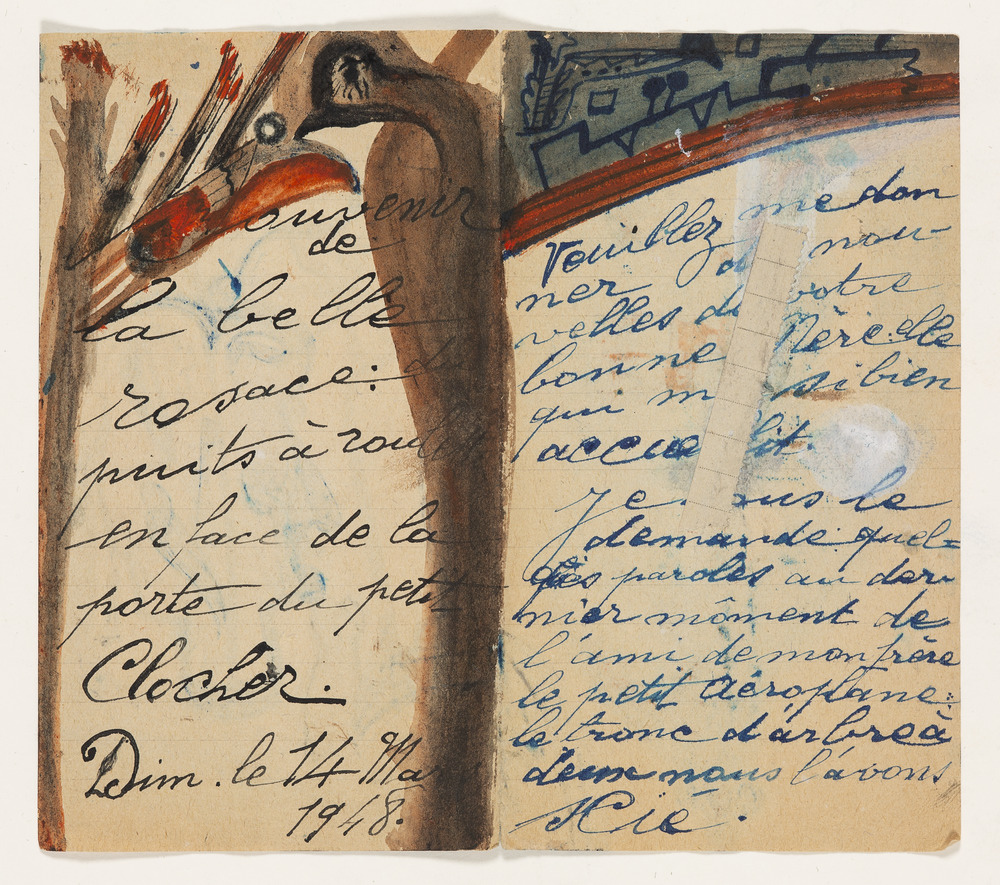 Souvenir
de
la belle
rosace:
puits à
en face de la
porte du petit
Clocher.
Dim. le 14 Mar
1948.
Veuillez me don
ner nou-
velles de votre
bonne Mère: elle
qui m si bien
accue lit.
Je vous le
demande quel=
ques paroles au der
nier môment de
l'ami de mon frère
le petit Aéroplane:
le tronc d'arbre à
deux nous l'avons
scié.